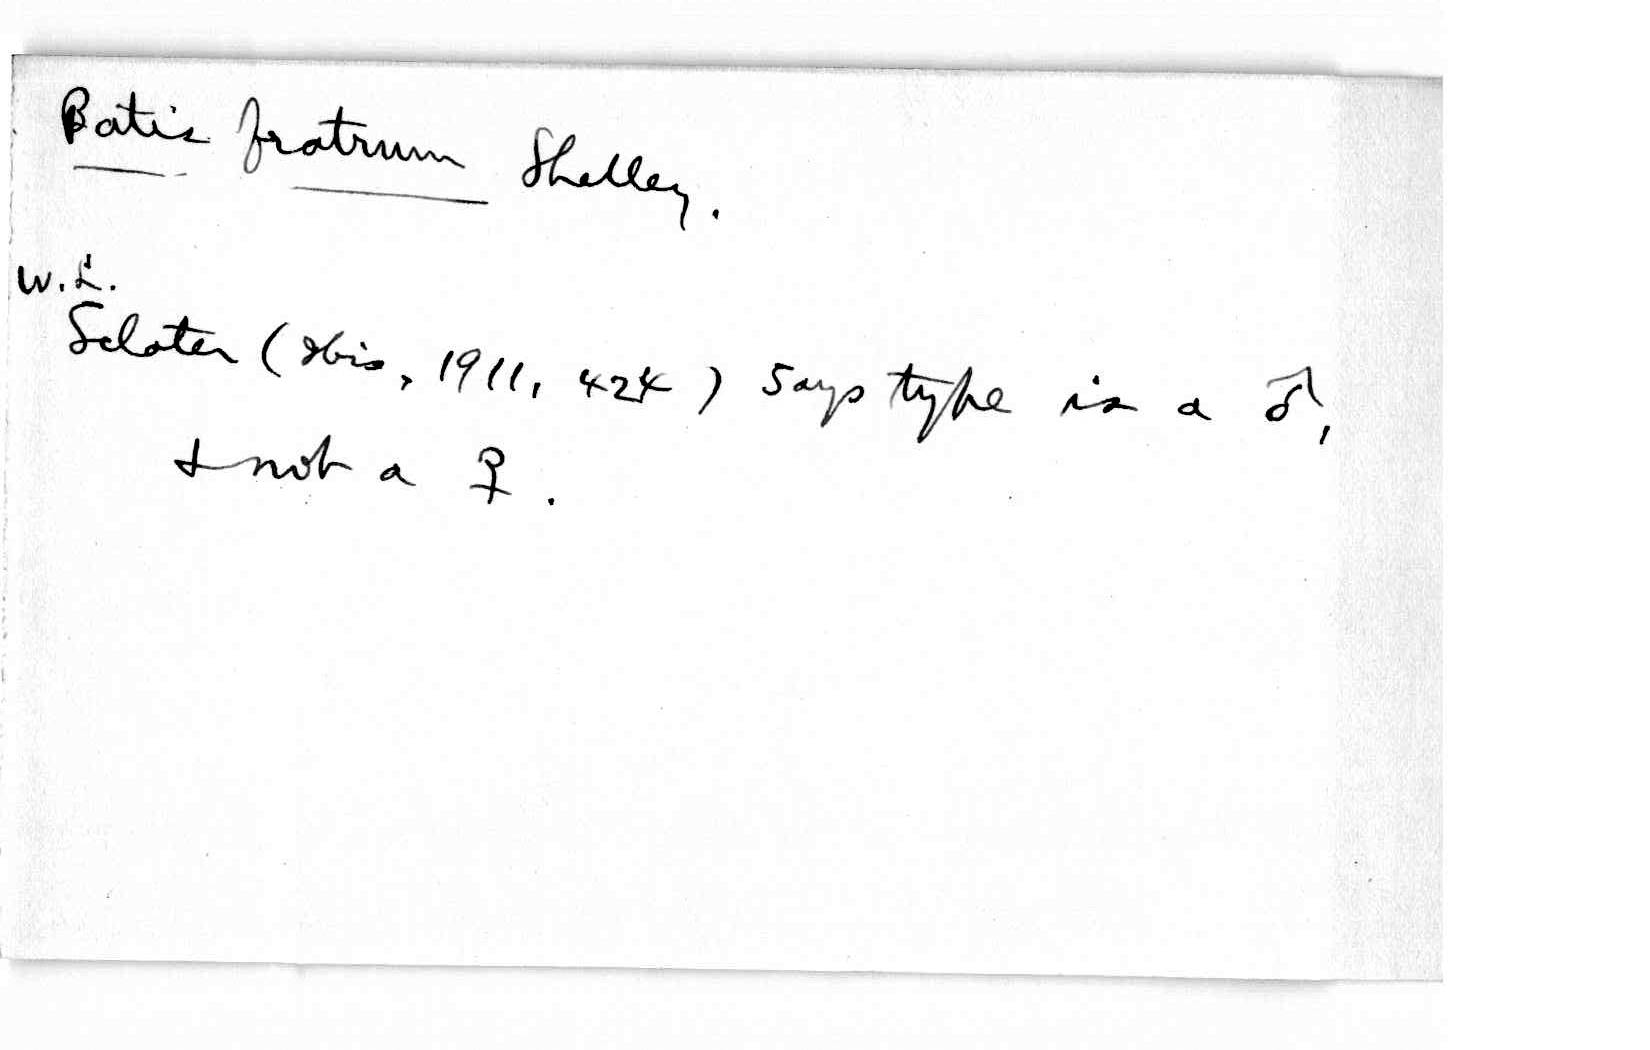 Batis fratrum Shelley.
W.L.
Sclater (Ibis, 1911, 424) says type is a ♂,
& not a ♀.